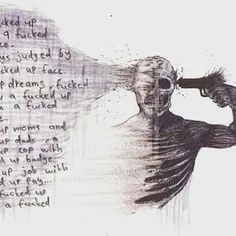 cked up
a fucked
ce.
ys judged by
cked up face
up dreams, fucked
a fucked up
a fucked
e.
up moms and
up dads no
up cop with
d up badge
up job with
d up pay....
fucked up
a fucked